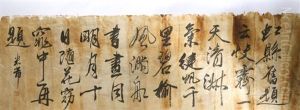 虹縣舊題
云快霽一
天清淑
氣健帆千
里碧榆
風滿舡
書畫同
明月十
日隋花窈
窕中再
題